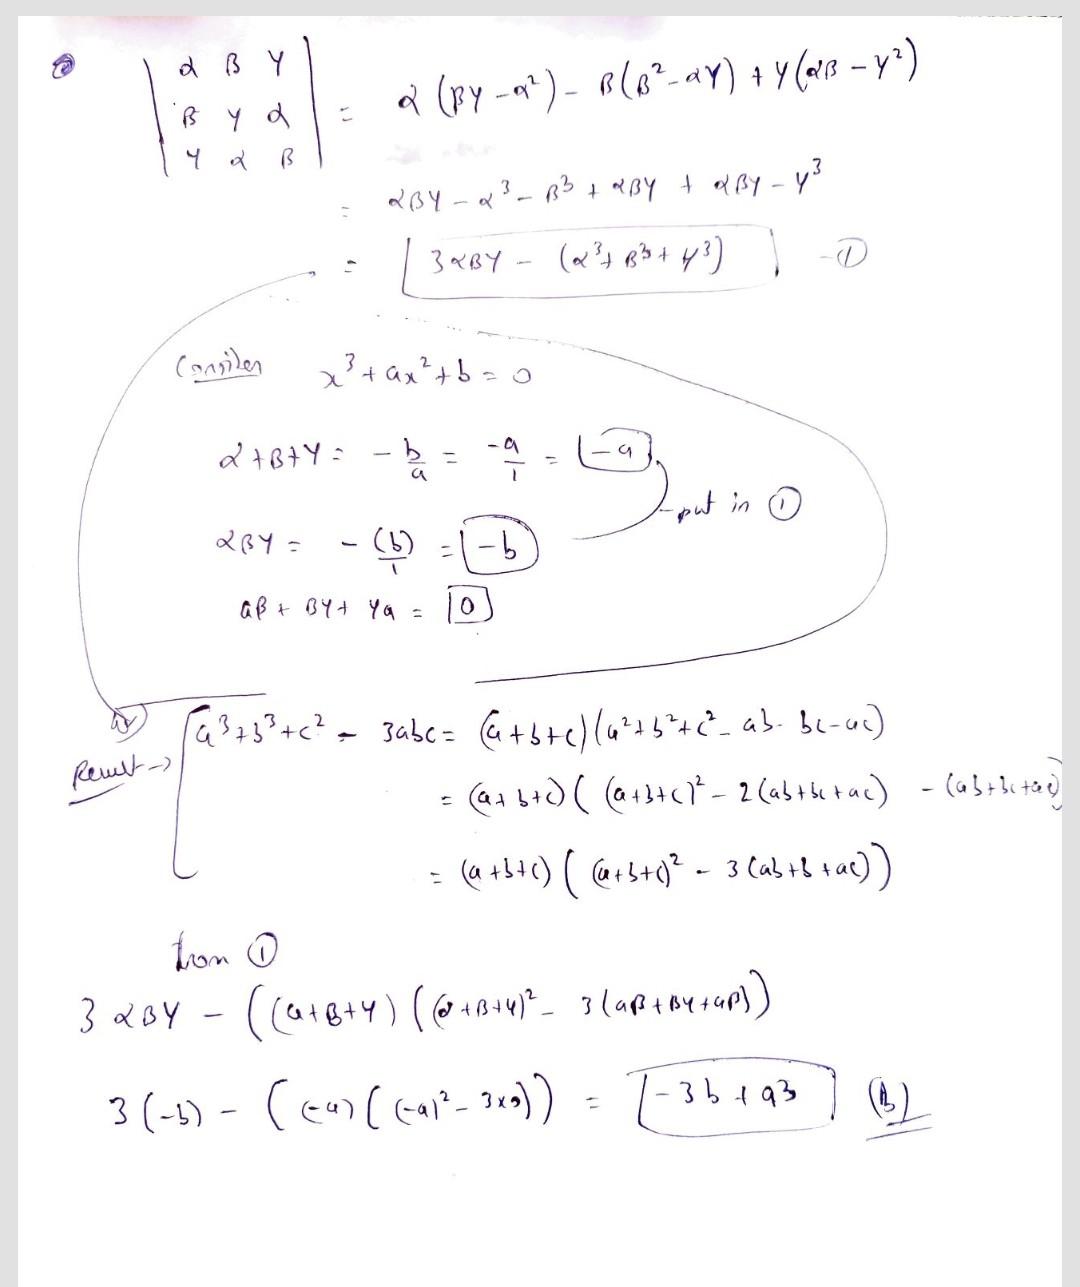 | α β γ |
| β γ α | = α (βγ - α²) - β(β² - αγ) + γ(αβ - γ²)
| γ α β |
= αβγ - α³ - β³ + αβγ + αβγ - γ³
= 3αβγ - (α³ + β³ + γ³) - ①
Consider x³ + ax² + b = 0
α + β + γ = - b/a = -a/1 = -a
put in ①
αβγ = - (b)/1 = -b
aβ + βγ + γa = 0
Result → a³ + b³ + c² - 3abc = (a + b + c) (a² + b² + c² - ab - bc - ac)
= (a + b + c) ( (a + b + c)² - 2(ab + bc + ac) - (ab + bc + ac)
= (a + b + c) ( (a + b + c)² - 3 (ab + b + ac))
from ①
3 αβγ - ((a + β + γ) ((α + β + γ)² - 3 (aβ + βγ + aβ))
3 (-b) - ( (-a) ( (-a)² - 3×0)) = -3b + a3 (B)